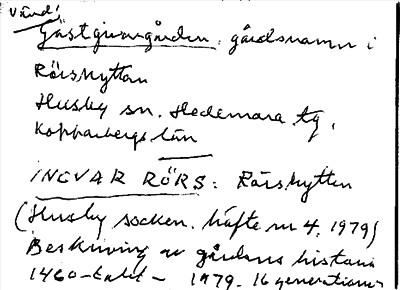 Vänd!
Gästgivargården, gårdsnamn i
Rörshyttan
Husby sn. Hedemora tg,
Kopparbergs län
INGVAR RÖRS: Rörshyttan
(Husby socken. häfte nr 4, 1979)
Beskrivning av gårdens historia
1460-talet - 1979. 16 generationer